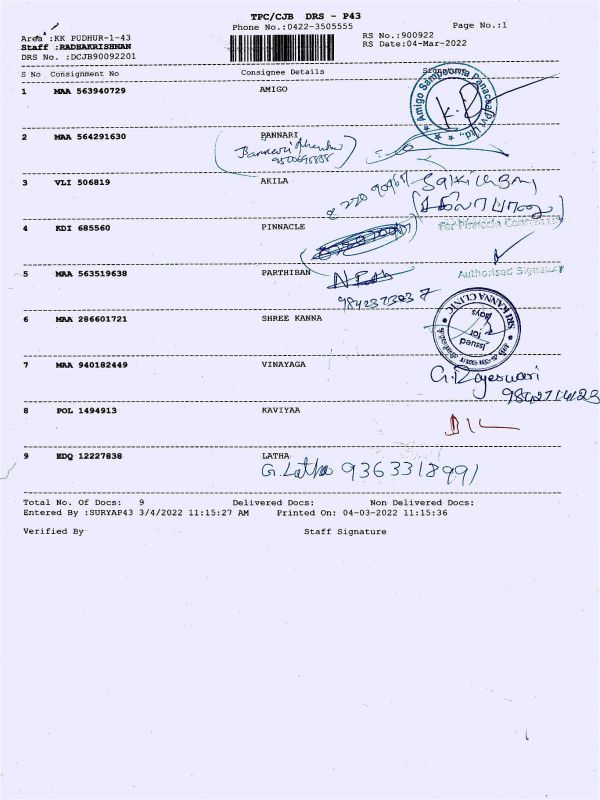 TPC/CJB DRS - P43
Phone No.:0422-3505555
Page No.:1
Area :KK PUDHUR-1-43
RS No.:900922
Staff :RADHAKRISHNAN
RS Date:04-Mar-2022
DRS No. :DCJB90092201
S No Consignment No Consignee Details
1 MAA 563940729 AMIGO
Amigo Panacea(Pvt) Ltd.,
2 MAA 564291630 BANNARI
3 VLI 506819 AKILA
4 KDI 685560 PINNACLE
For Pinnacle
5 MAA 563519638 PARTHIBAN
Authorised Signatory
6 MAA 286601721 SHREE KANNA
SRI KANNA CLINIC
Issued for
7 MAA 940182449 VINAYAGA
G. Rajeswari
8 POL 1494913 KAVIYAA
9 EDQ 12227838 LATHA
G. Latha 9363318991
Total No. Of Docs: 9 Delivered Docs: Non Delivered Docs:
Entered By :SURYAP43 3/4/2022 11:15:27 AM Printed On: 04-03-2022 11:15:36
Verified By Staff Signature